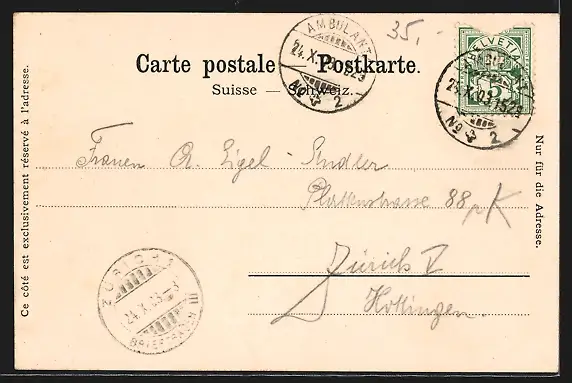 35.-
AMBULANT
24.X.03
No 2
HELVETIA
5
AMBULANT
24.X.03 1523
No 2
Carte postale — Postkarte.
Suisse — Schweiz.
Ce côté est exclusivement réservé à l'adresse.
Nur für die Adresse.
Frauen A. Sigel-
Plattenstrasse 88
Zürich V
Hottingen.
ZÜRICH
24.X.03
BRIEFTRÄGER III